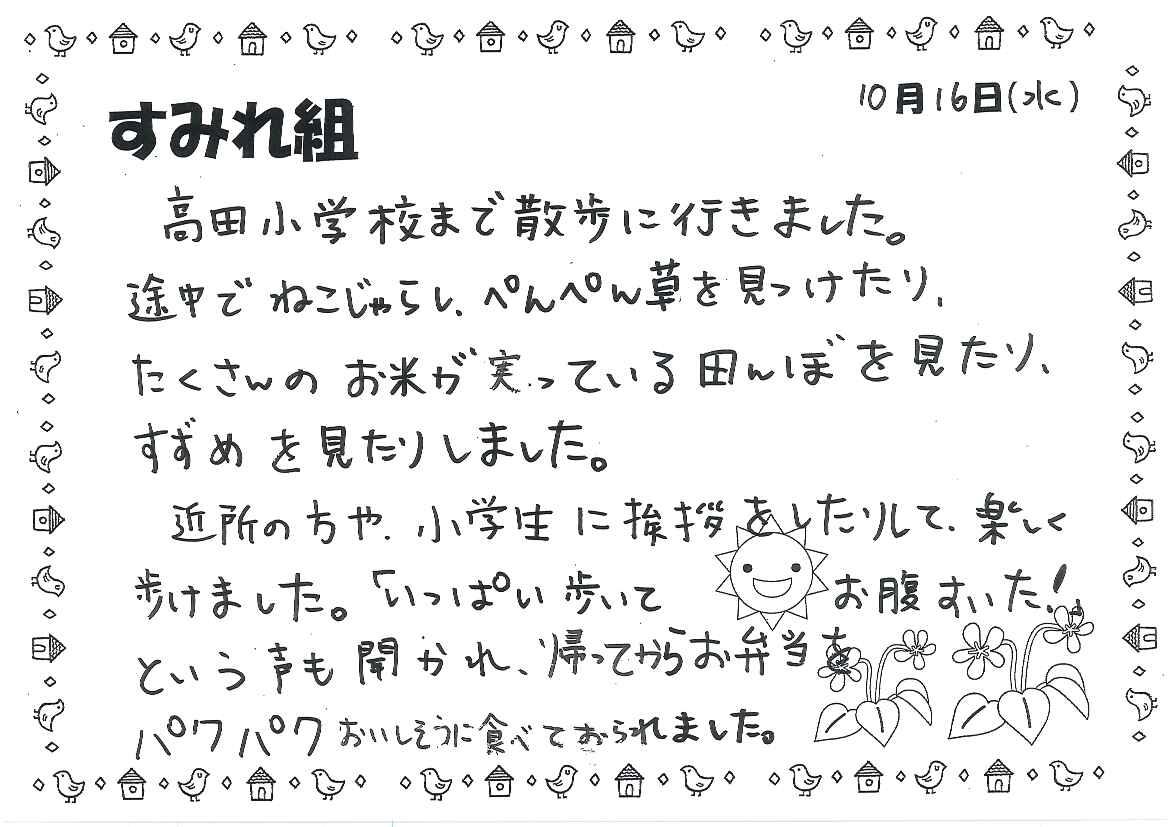 10月16日(水)
すみれ組
高田小学校まで散歩に行きました。
途中でねこじゃらし、ぺんぺん草を見つけたり、
たくさんのお米が実っている田んぼを見たり、
すずめを見たりしました。
近所の方や、小学生に挨拶をしたりして、楽しく
歩けました。「いっぱい歩いてお腹すいた!」
という声も聞かれ、帰ってからお弁当を
パクパクおいしそうに食べておられました。